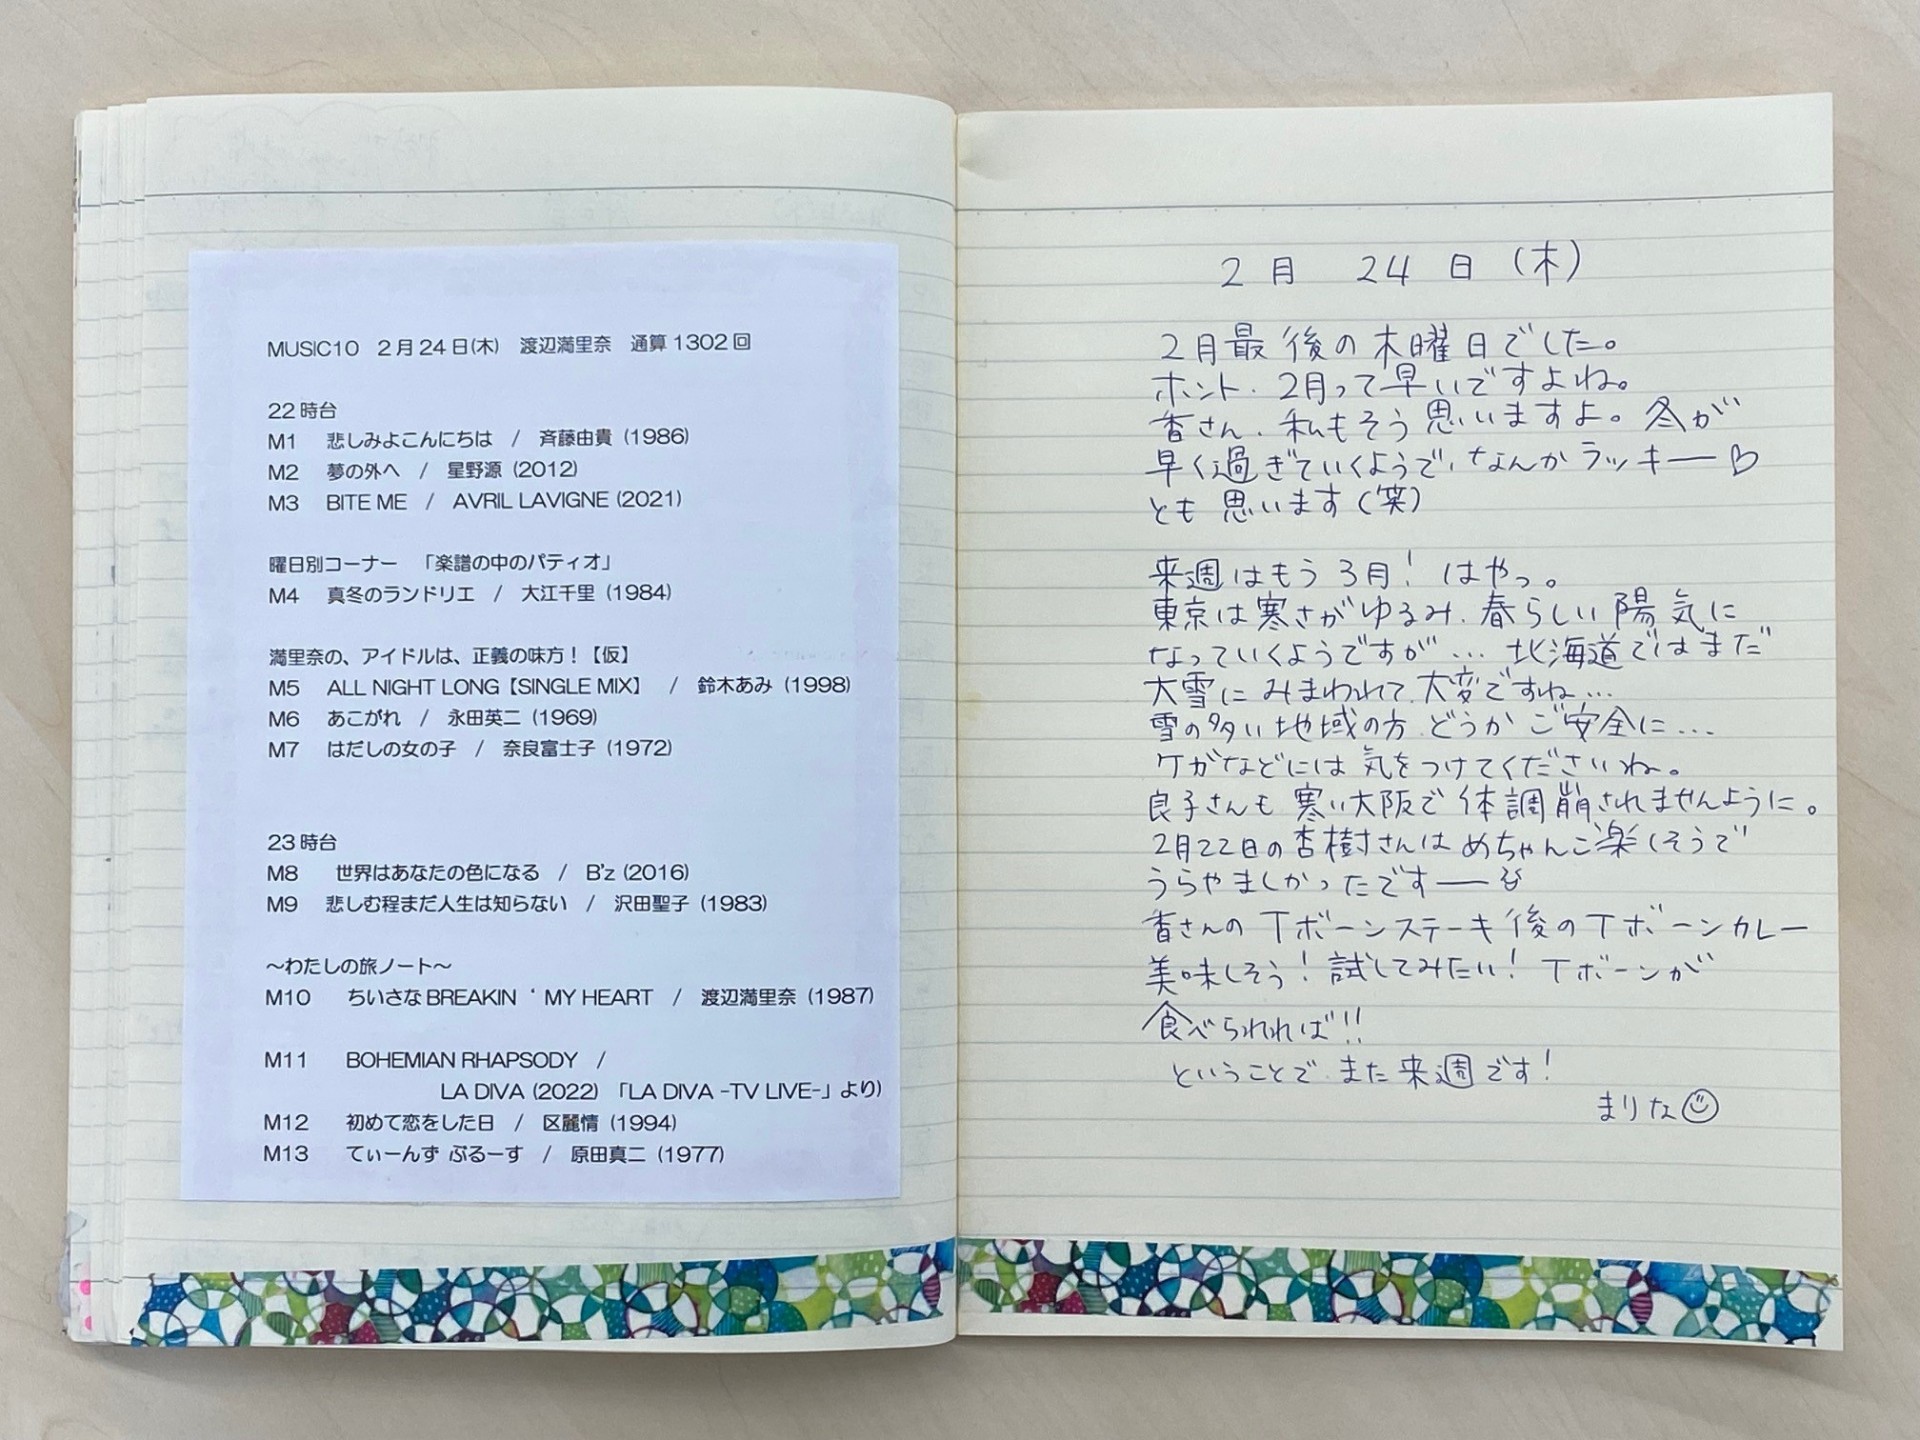 MUSIC10　2月24日(木)　渡辺満里奈　通算1302回
22時台
M1　悲しみよこんにちは　/　斉藤由貴 (1986)
M2　夢の外へ　/　星野源 (2012)
M3　BITE ME　/　AVRIL LAVIGNE (2021)
曜日別コーナー　「楽譜の中のパティオ」
M4　真冬のランドリエ　/　大江千里 (1984)
満里奈の、アイドルは、正義の味方！【仮】
M5　ALL NIGHT LONG【SINGLE MIX】　/　鈴木あみ (1998)
M6　あこがれ　/　永田英二 (1969)
M7　はだしの女の子　/　奈良富士子 (1972)
23時台
M8　世界はあなたの色になる　/　B'z (2016)
M9　悲しむ程まだ人生は知らない　/　沢田聖子 (1983)
～わたしの旅ノート～
M10　ちいさなBREAKIN ' MY HEART　/　渡辺満里奈 (1987)
M11　BOHEMIAN RHAPSODY　/
LA DIVA (2022) 「LA DIVA -TV LIVE-」より)
M12　初めて恋をした日　/　区麗情 (1994)
M13　てぃーんず ぶるーす　/　原田真二 (1977)
2月　24日(木)
2月最後の木曜日でした。
ホント、2月って早いですよね。
香さん、私もそう思いますよ。冬が
早く過ぎていくようで、なんかラッキー♡
とも思います(笑)
来週はもう3月！はやっ。
東京は寒さがゆるみ、春らしい陽気に
なっていくようですが…北海道ではまだ
大雪にみまわれて大変ですね…
雪の多い地域の方、どうかご安全に…
ケガなどには気をつけてくださいね。
良子さんも寒い大阪で体調崩されませんように。
2月22日の杏樹さんはめちゃんこ楽しそうで
うらやましかったですー
香さんのTボーンステーキ後のTボーンカレー
美味しそう！試してみたい！Tボーンが
食べられれば!!
ということで、また来週です！
まりな☺